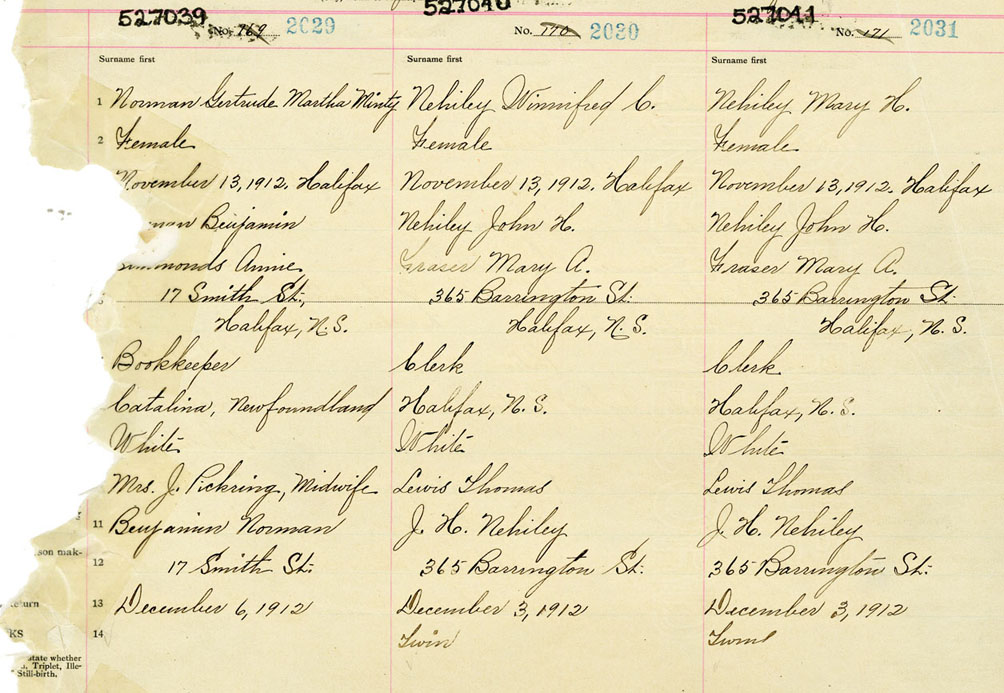 527039
527040
527041
No. 769 2029
No. 770 2030
No. 171 2031
Surname first
Surname first
Surname first
1 Norman Gertrude Martha Minty
Nehiley Winnifred C.
Nehiley Mary H.
2 Female
Female
Female
November 13, 1912. Halifax
November 13, 1912. Halifax
November 13, 1912. Halifax
Benjamin
Nehiley John H.
Nehiley John H.
Annie
Fraser Mary A.
Fraser Mary A.
17 Smith St.,
365 Barrington St.
365 Barrington St.
Halifax, N.S.
Halifax, N.S.
Halifax, N.S.
Bookkeeper
Clerk
Clerk
Catalina, Newfoundland
Halifax, N.S.
Halifax, N.S.
White
White
White
Mrs. J. Pickring, Midwife
Lewis Thomas
Lewis Thomas
11 Benjamin Norman
J. H. Nehiley
J. H. Nehiley
son mak-
12 17 Smith St.
365 Barrington St.
365 Barrington St.
13 December 6, 1912
December 3, 1912
December 3, 1912
KS
14
Twin
Twin
state whether
Triplet, Ille-
Still-birth.